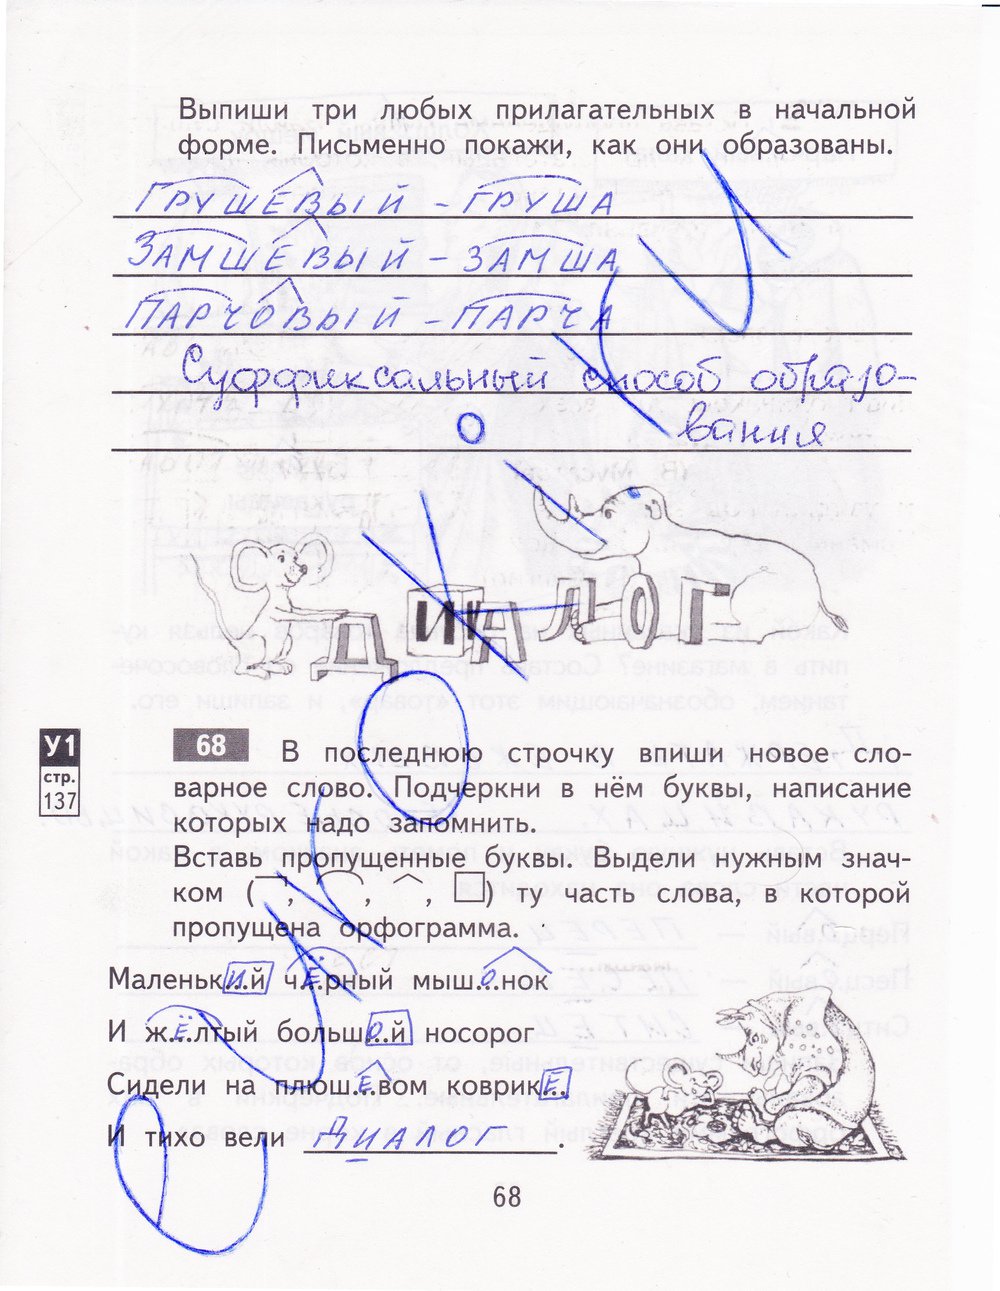 Выпиши три любых прилагательных в начальной
форме. Письменно покажи, как они образованы.
ГРУШЕВЫЙ - ГРУША
ЗАМШЕВЫЙ - ЗАМША
ПАРЧОВЫЙ - ПАРЧА
Суффиксальный способ образо-
вания
ДИАЛОГ
У1
стр.
137
68 В последнюю строчку впиши новое сло-
варное слово. Подчеркни в нём буквы, написание
которых надо запомнить.
Вставь пропущенные буквы. Выдели нужным знач-
ком ( , , , ) ту часть слова, в которой
пропущена орфограмма.
Маленький чёрный мышонок
И жёлтый большой носорог
Сидели на плюшевом коврике
И тихо вели ДИАЛОГ.
68